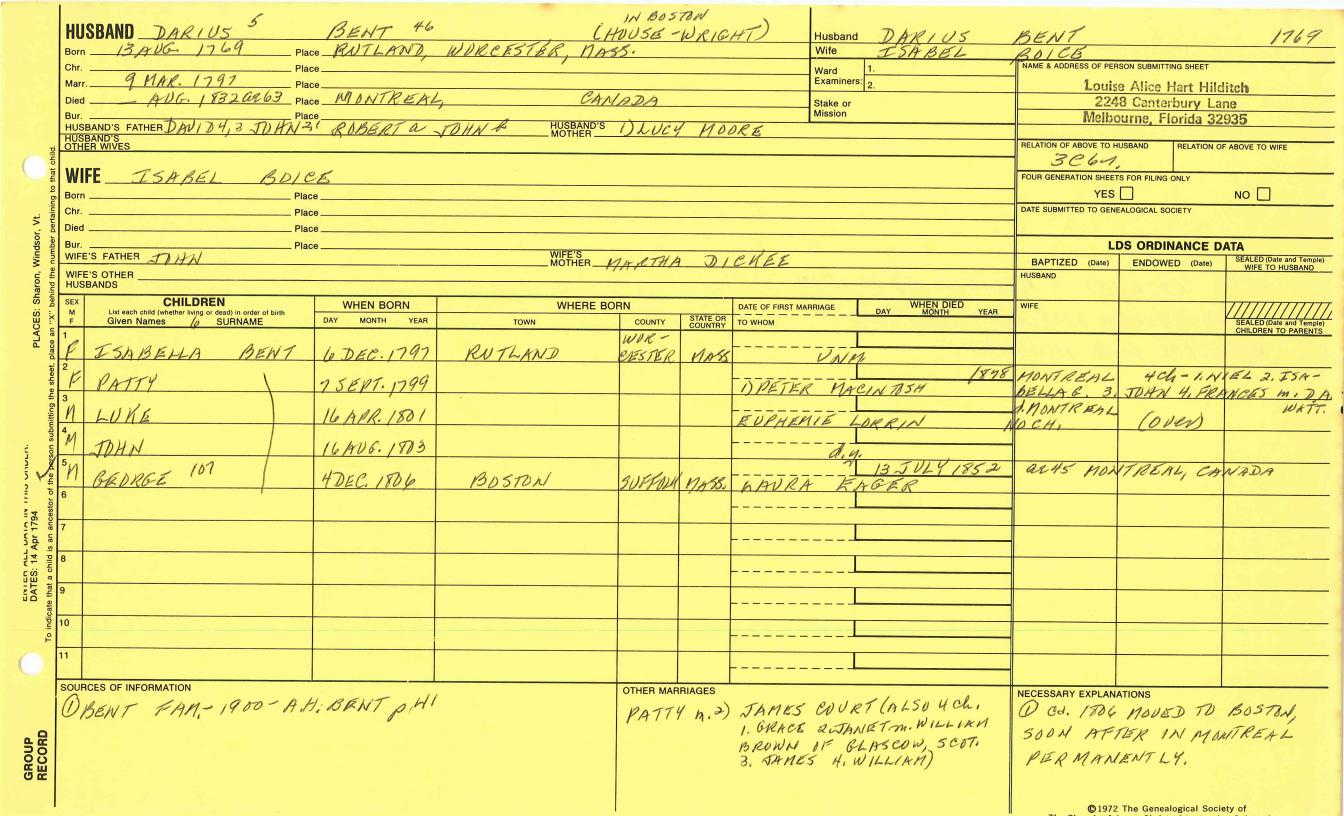 HUSBAND DARIUS 5 BENT 46 IN BOSTON (HOUSE-WRIGHT)
Born 13 AUG. 1769 Place RUTLAND, WORCESTER, MASS.
Chr. Place
Marr. 9 MAR. 1797 Place
Died — AUG. 1832 ae 63 Place MONTREAL, CANADA
Bur. Place
HUSBAND'S FATHER DAVID 4, 3 JOHN 2, ROBERT JOHN HUSBAND'S MOTHER 1) LUCY MOORE
HUSBAND'S OTHER WIVES
WIFE ISABEL BOICE
Born Place
Chr. Place
Died Place
Bur. Place
WIFE'S FATHER JOHN WIFE'S MOTHER MARTHA DICKEE
WIFE'S OTHER HUSBANDS
Husband DARIUS BENT 1769
Wife ISABEL BOICE
Ward Examiners: 1.
2.
Stake or Mission
NAME & ADDRESS OF PERSON SUBMITTING SHEET
Louise Alice Hart Hilditch
2248 Canterbury Lane
Melbourne, Florida 32935
RELATION OF ABOVE TO HUSBAND RELATION OF ABOVE TO WIFE
3C6r.
FOUR GENERATION SHEETS FOR FILING ONLY
YES NO
DATE SUBMITTED TO GENEALOGICAL SOCIETY
LDS ORDINANCE DATA
BAPTIZED (Date) ENDOWED (Date) SEALED (Date and Temple) WIFE TO HUSBAND
HUSBAND
WIFE
SEALED (Date and Temple) CHILDREN TO PARENTS
SEX M F
CHILDREN
List each child (whether living or dead) in order of birth
Given Names SURNAME
WHEN BORN
DAY MONTH YEAR
WHERE BORN
TOWN COUNTY STATE OR COUNTRY
DATE OF FIRST MARRIAGE
TO WHOM
WHEN DIED
DAY MONTH YEAR
1 F ISABELLA BENT 6 DEC. 1797 RUTLAND WORCESTER MASS UNM
2 F PATTY 7 SEPT. 1799 1) PETER MACINTOSH 1878 MONTREAL 4 ch - 1. NIEL 2. ISABELLA G. 3. JOHN 4. FRANCES m. D.A. WATT.
3 M LUKE 16 APR. 1801 EUPHEMIE LORRIN d. MONTREAL NO CH. (over)
4 M JOHN 16 AUG. 1803 d.y.
5 M GEORGE 107 4 DEC. 1806 BOSTON SUFFOLK MASS. LAURA EAGER 13 JULY 1852 ae 45 MONTREAL, CANADA
6
7
8
9
10
11
SOURCES OF INFORMATION
① BENT FAM. - 1900 - A.H. BENT p 41
OTHER MARRIAGES
PATTY m. 2) JAMES COURT (ALSO 4 ch.
1. GRACE 2. JANET m. WILLIAM
BROWN OF GLASCOW, SCOT.
3. JAMES 4. WILLIAM)
NECESSARY EXPLANATIONS
① Cd. 1806 MOVED TO BOSTON,
SOON AFTER IN MONTREAL
PERMANENTLY.
©1972 The Genealogical Society of
PLACES: Sharon, Windsor, Vt.
DATES: 14 Apr 1794
To indicate that a child is an ancestor of the person submitting the sheet, place an "X" behind the number pertaining to that child.
GROUP RECORD